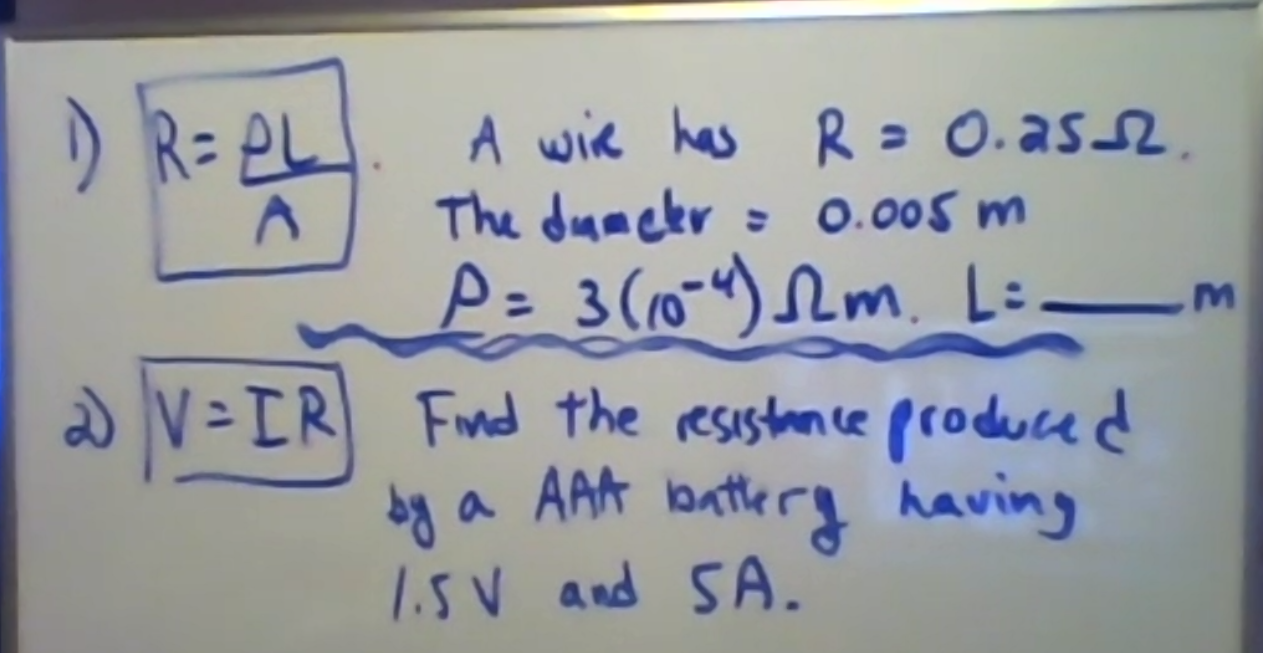 1) R = ρL/A. A wire has R = 0.25Ω.
The diameter = 0.005 m
ρ = 3(10⁻⁴) Ωm. L = ____ m
2) V = IR Find the resistance produced
by a AAA battery having
1.5 V and 5A.